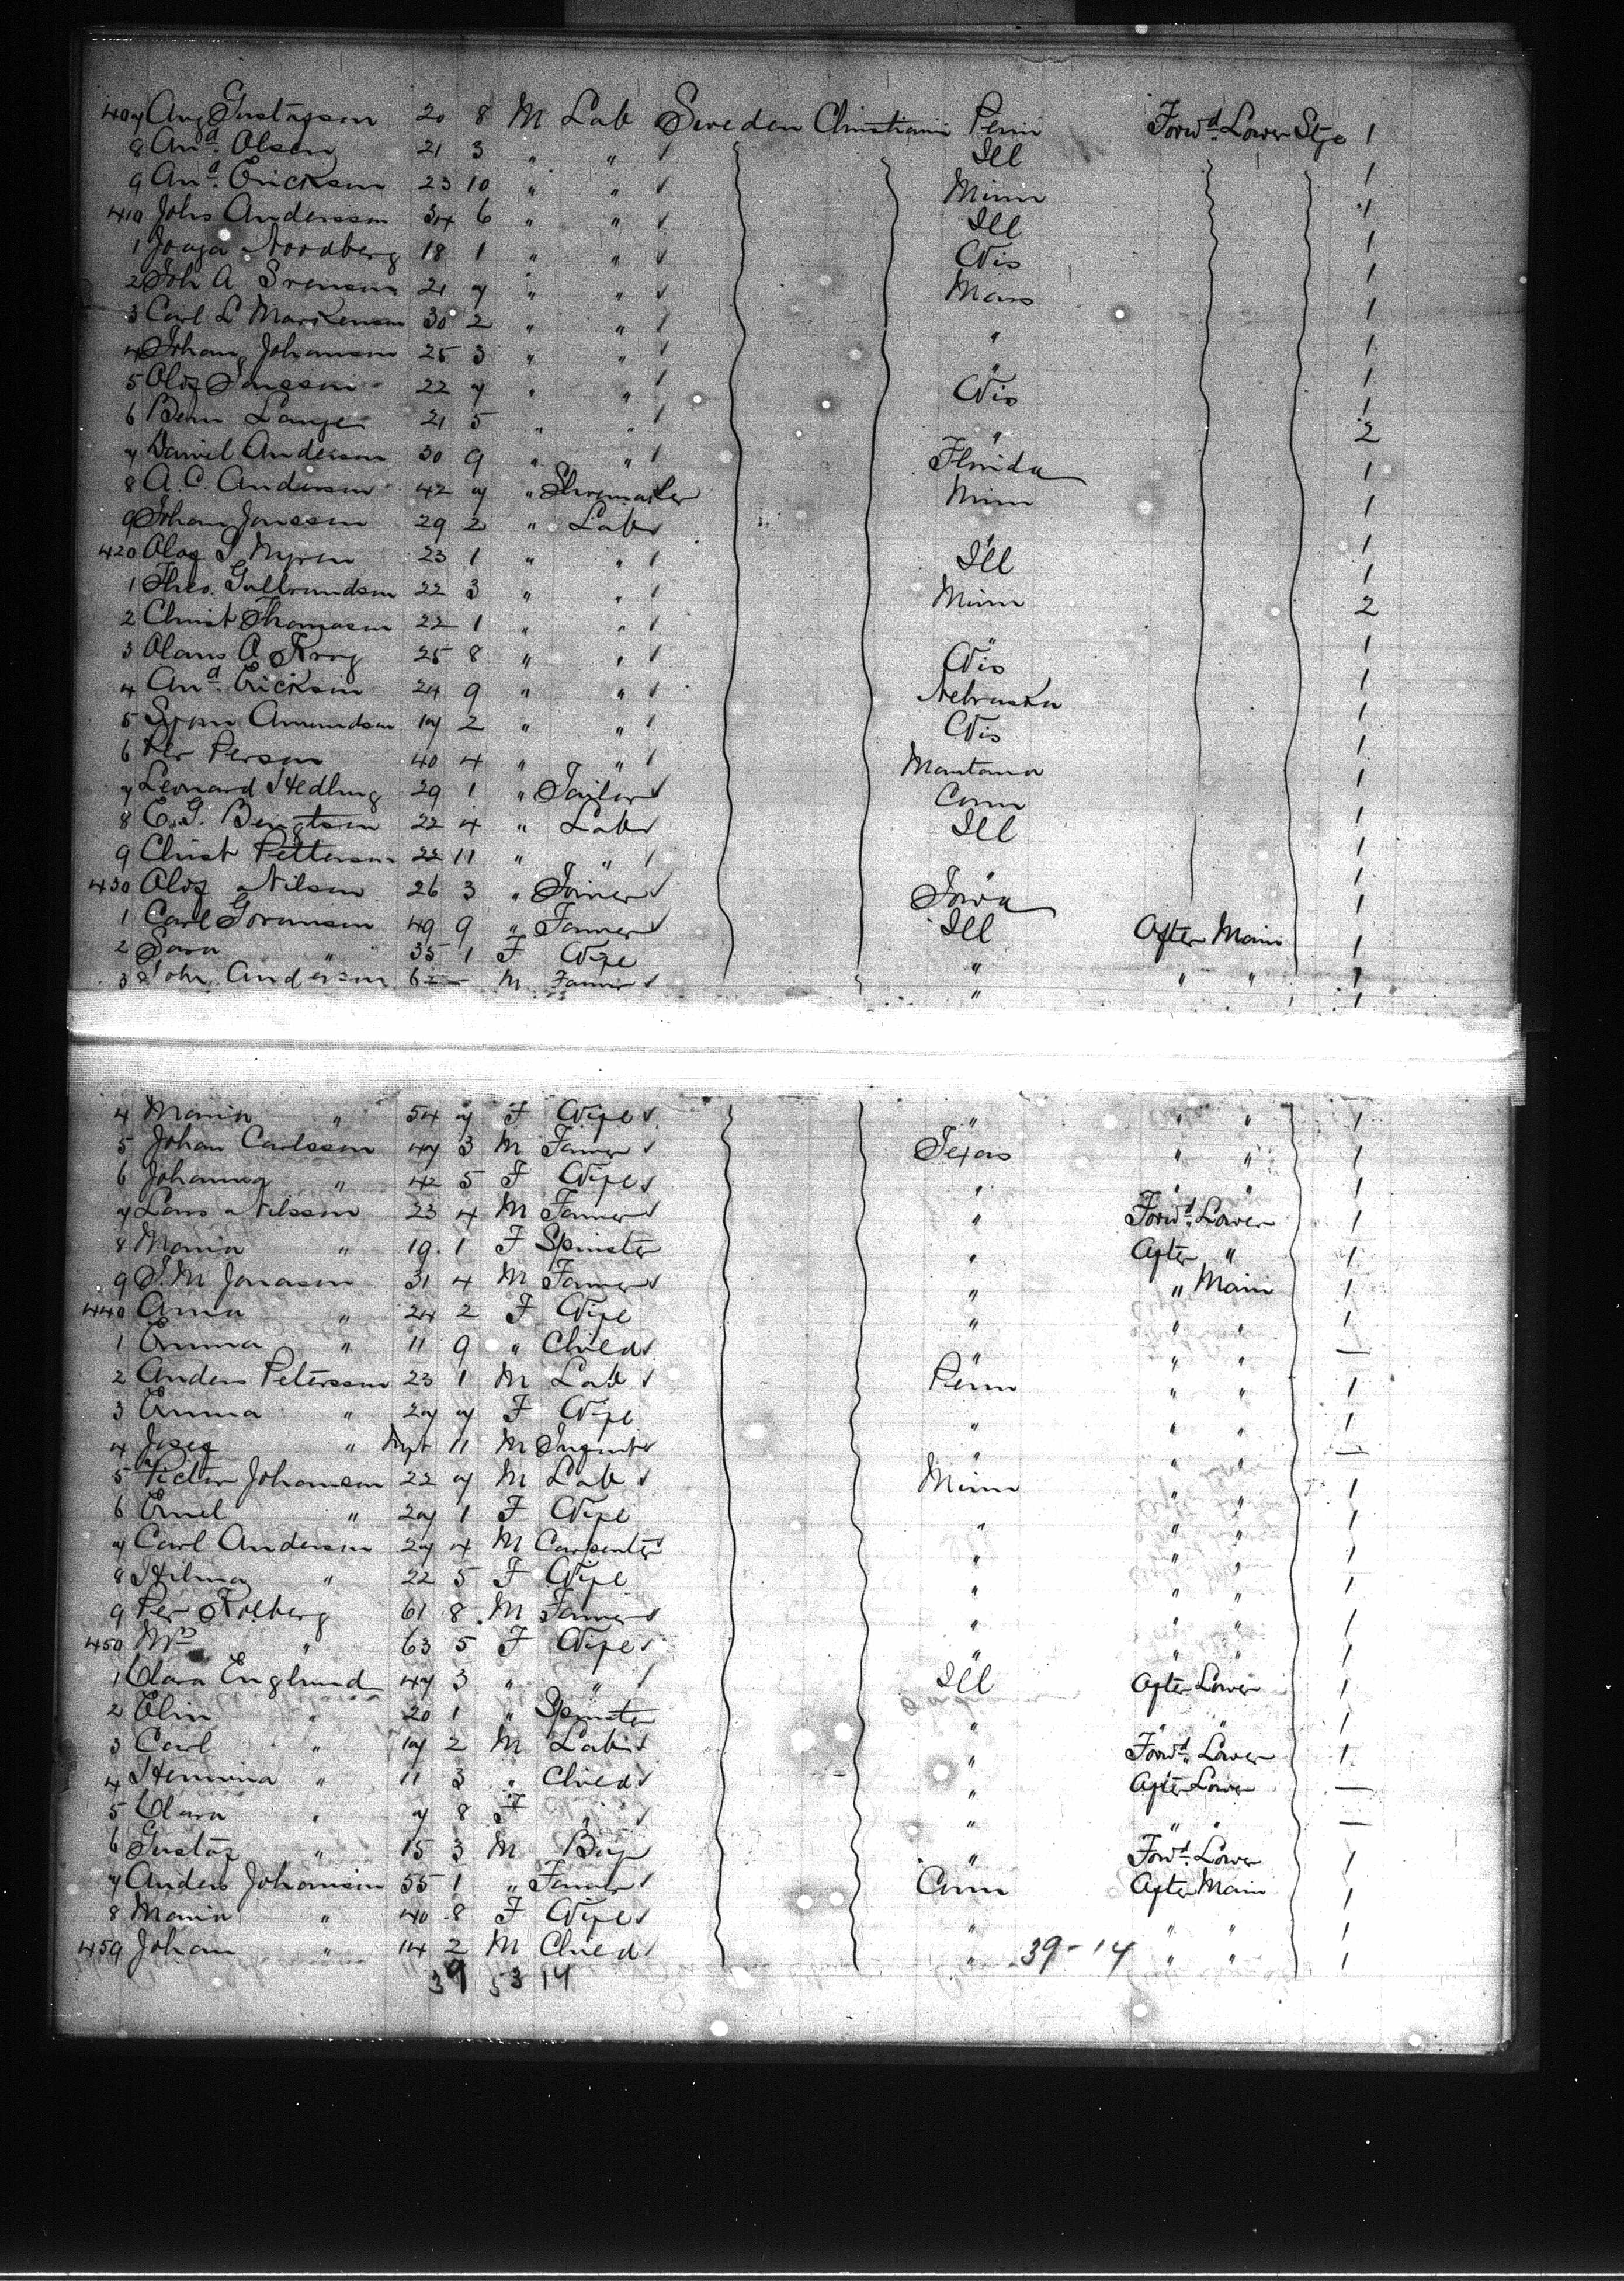 407 Aug Gustafson 20 8 M Lab Sweden Christiania Penn Forwd. Lower Stge 1
8 And. Olsen 21 3 " " Ill 1
9 And. Erickson 23 10 " " Minn 1
410 Johs Andersson 34 6 " " Ill 1
1 Noordberg 18 1 " " Wis 1
2 Joh A Svenson 21 7 " " Mass 1
3 Carl L 30 2 " " " 1
4 Johan Johanson 25 3 " " " 1
5 Olof Jansson 22 7 " " Wis 1
6 Bern Lange 21 5 " " " 2
7 Daniel Anderson 30 9 " " Florida 1
8 A. C. Anderson 42 7 " Shoemaker Minn 1
9 Johan Jonsson 29 2 " Lab " 1
420 Olof Myren 23 1 " " Ill 1
1 Theo. Gulbrandsen 22 3 " " Minn 2
2 Christ Thomasen 22 1 " " " 1
3 A 25 8 " " Wis 1
4 And. Erickson 24 9 " " Nebraska 1
5 Amundsen 17 2 " " Wis 1
6 Per Person 40 4 " " Montana 1
7 Leonard Hedling 29 1 " Tailor Conn 1
8 C. G. Bengtson 22 4 " Lab Ill 1
9 Christ Petterson 22 11 " " " 1
430 Olof Nilson 26 3 " Joiner Iowa 1
1 Carl Goranson 49 9 " Farmer Ill After Main 1
2 Sara " 35 1 F Wife " " " 1
3 John Anderson 6 M Farmer " 1
4 Maria " 54 7 F Wife " " " 1
5 Johan Carlsson 47 3 M Farmer Texas " " 1
6 Johanna " 42 5 F Wife " " " 1
7 Lars Nilsson 23 4 M Farmer " Forwd. Lower 1
8 Maria " 19 1 F Spinster " After " 1
9 Jonason 31 4 M Farmer " " Main 1
440 Anna " 24 2 F Wife " " " 1
1 Emma " 11 9 " Child " " " —
2 Anders Petersson 23 1 M Lab Penn " " 1
3 Emma " 27 7 F Wife " " " 1
4 Josef " Inft 11 M Infant " " " —
5 Victor Johanson 22 7 M Lab Minn " " 1
6 Emel " 27 1 F Wife " " " 1
7 Carl Anderson 27 4 M Carpenter " " " 1
8 Hilma " 22 5 F Wife " " " 1
9 Per Kolberg 61 8 M Farmer " " " 1
450 Mrs " 63 5 F Wife " " " 1
1 Clara Englund 47 3 " " Ill After Lower 1
2 Elin " 20 1 " Spinster " " " 1
3 Carl " 17 2 M Lab " Forwd. Lower 1
4 " 11 3 " Child " After Lower —
5 Clara " 7 8 F " " " " —
6 Gustaf " 15 3 M Boy " Forwd. Lower 1
7 Anders Johanson 55 1 " Farmer Conn After Main 1
8 Maria " 40 8 F Wife " " " 1
459 Johan " 14 2 M Child " 39-14 " " 1
39 53 14